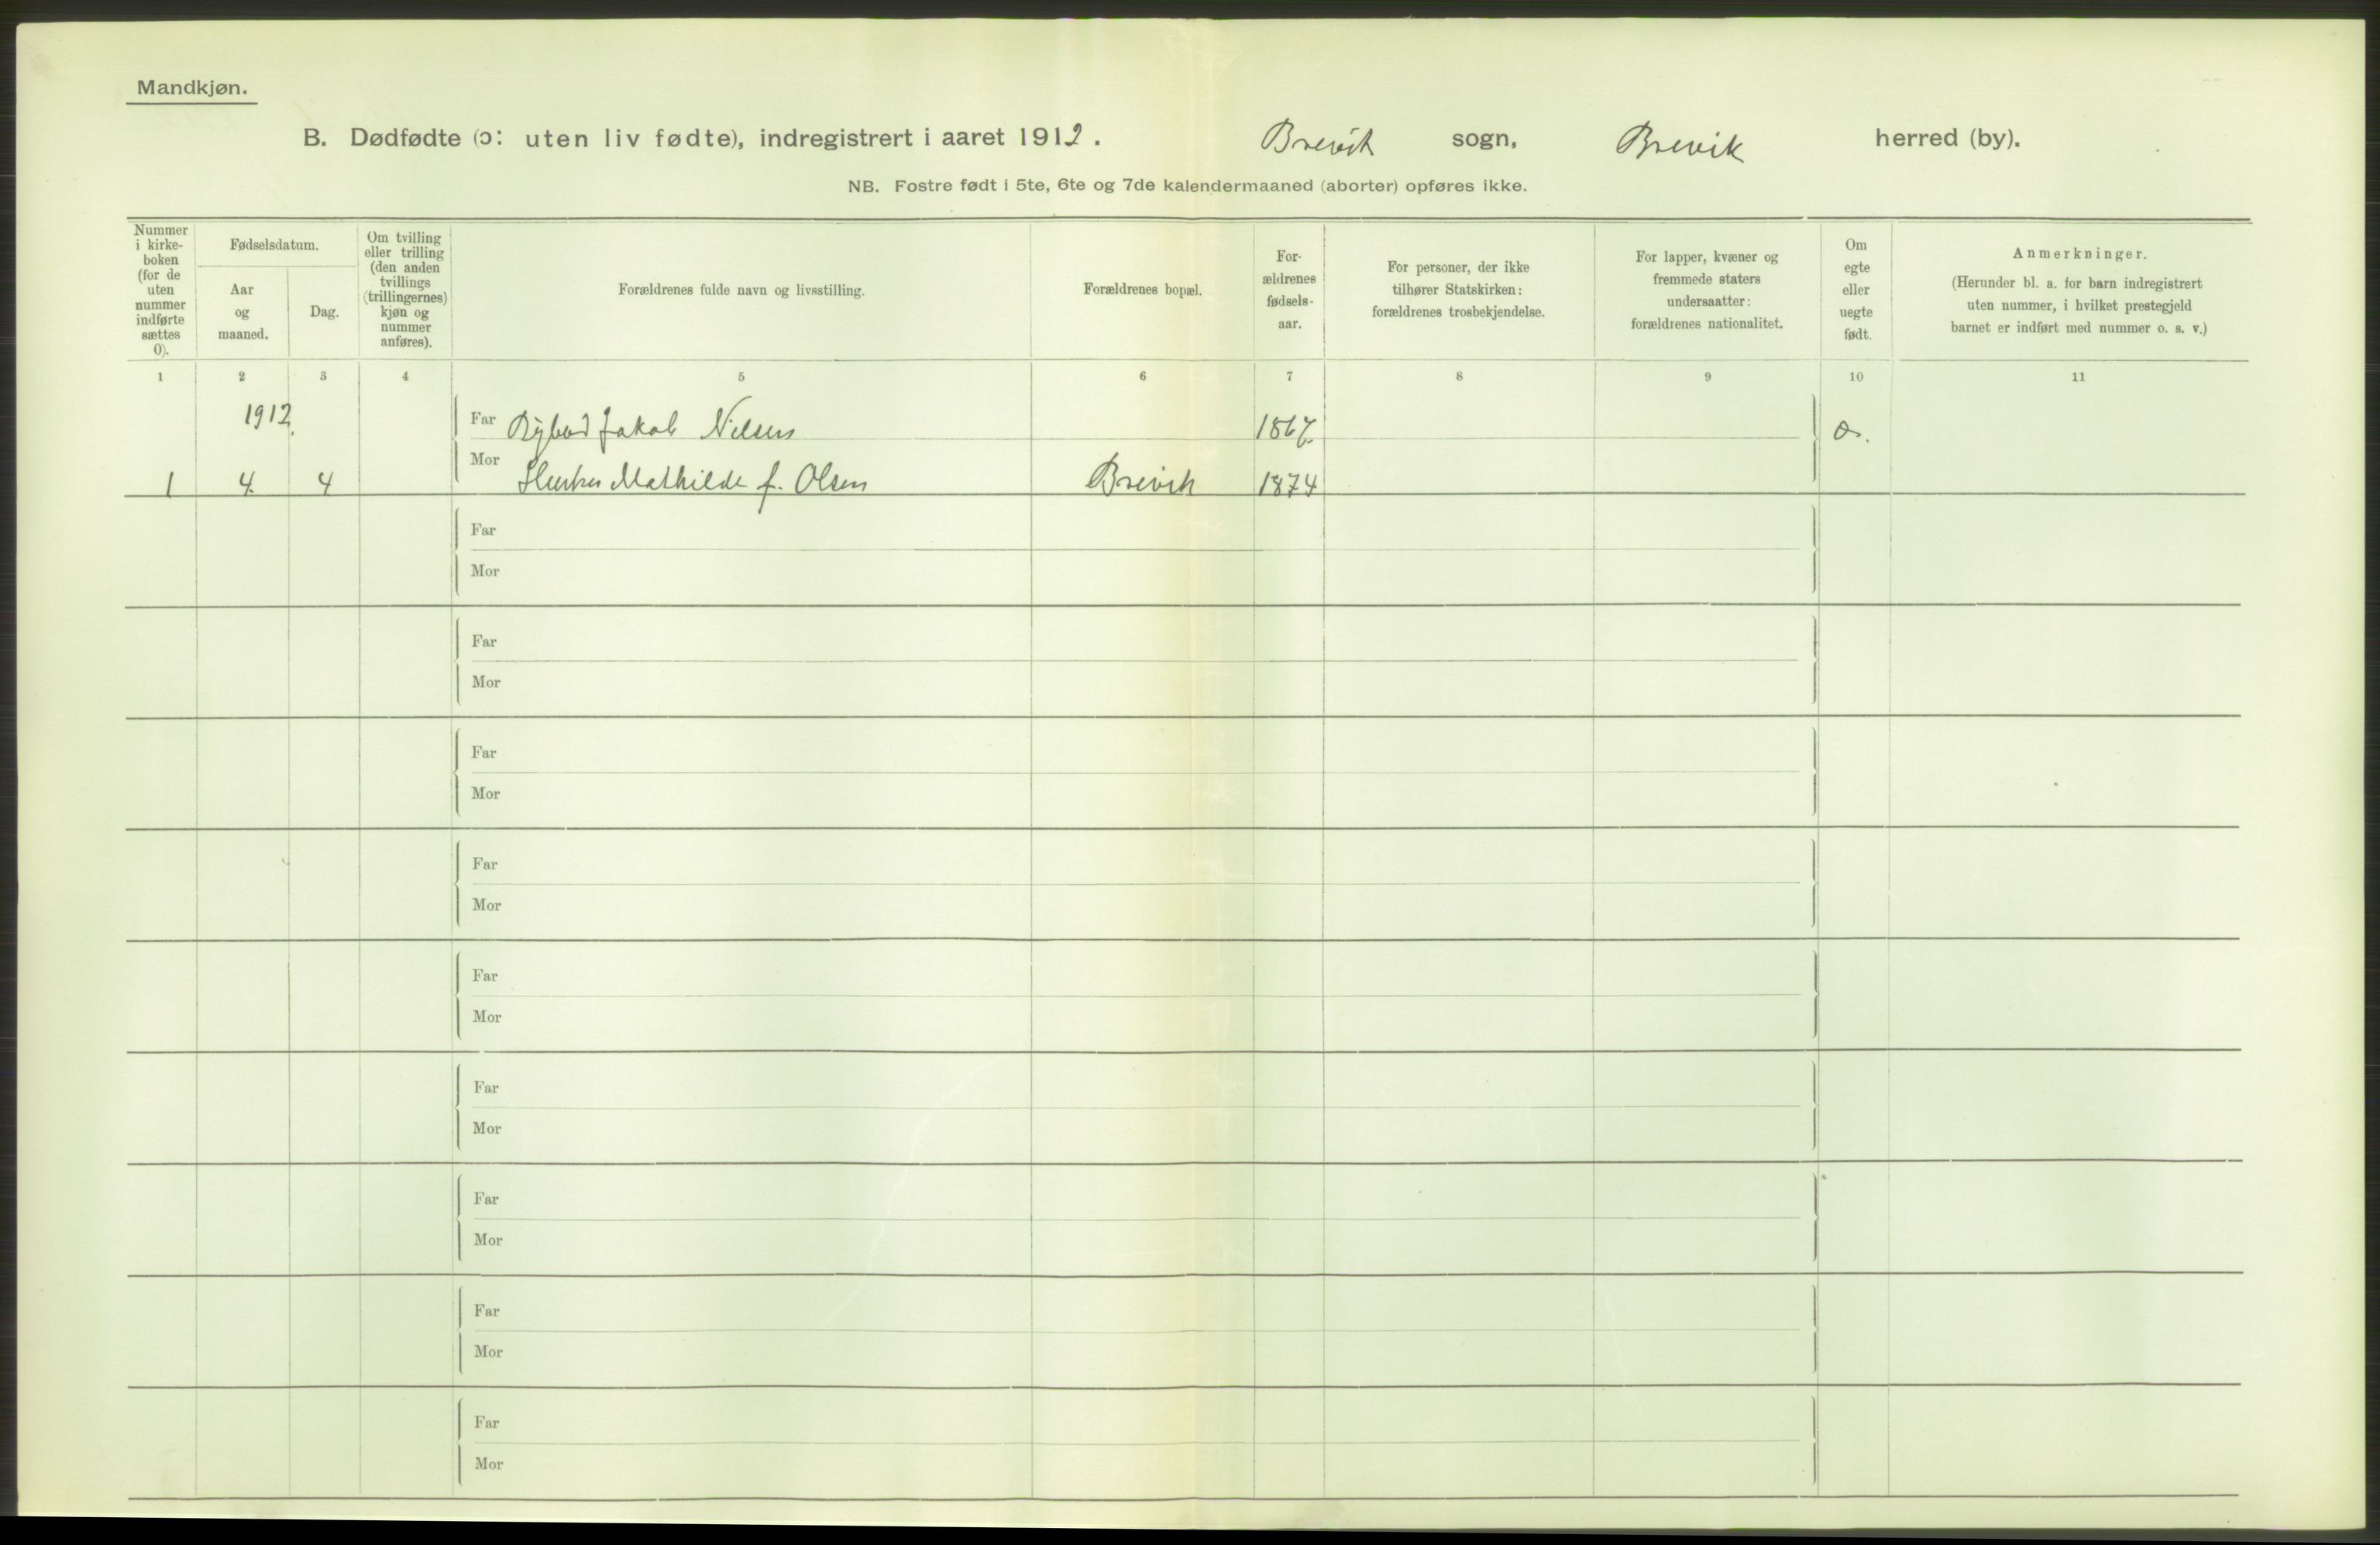 Mandkjøn.
B. Dødfødte (ɔ: uten liv fødte), indregistrert i aaret 1912. Brevik sogn, Brevik herred (by).
NB. Fostre født i 5te, 6te og 7de kalendermaaned (aborter) opføres ikke.
Nummer
i kirke-
boken
(for de
uten
nummer
indførte
sættes
0).
Fødselsdatum.
Aar
og
maaned.
Dag.
Om tvilling
eller trilling
(den anden
tvillings
(trillingernes)
kjøn og
nummer
anføres).
Forældrenes fulde navn og livsstilling.
Forældrenes bopæl.
For-
ældrenes
fødsels-
aar.
For personer, der ikke
tilhører Statskirken:
forældrenes trosbekjendelse.
For lapper, kvæner og
fremmede staters
undersaatter:
forældrenes nationalitet.
Om
egte
eller
uegte
født.
Anmerkninger.
(Herunder bl. a. for barn indregistrert
uten nummer, i hvilket prestegjeld
barnet er indført med nummer o. s. v.)
1 2 3 4 5 6 7 8 9 10 11
1912
Far Jakob Nilsen 1867
Mor
1 4 4 Mathilde f. Olsen Brevik 1874
Far
Mor
Far
Mor
Far
Mor
Far
Mor
Far
Mor
Far
Mor
Far
Mor
Far
Mor
Far
Mor